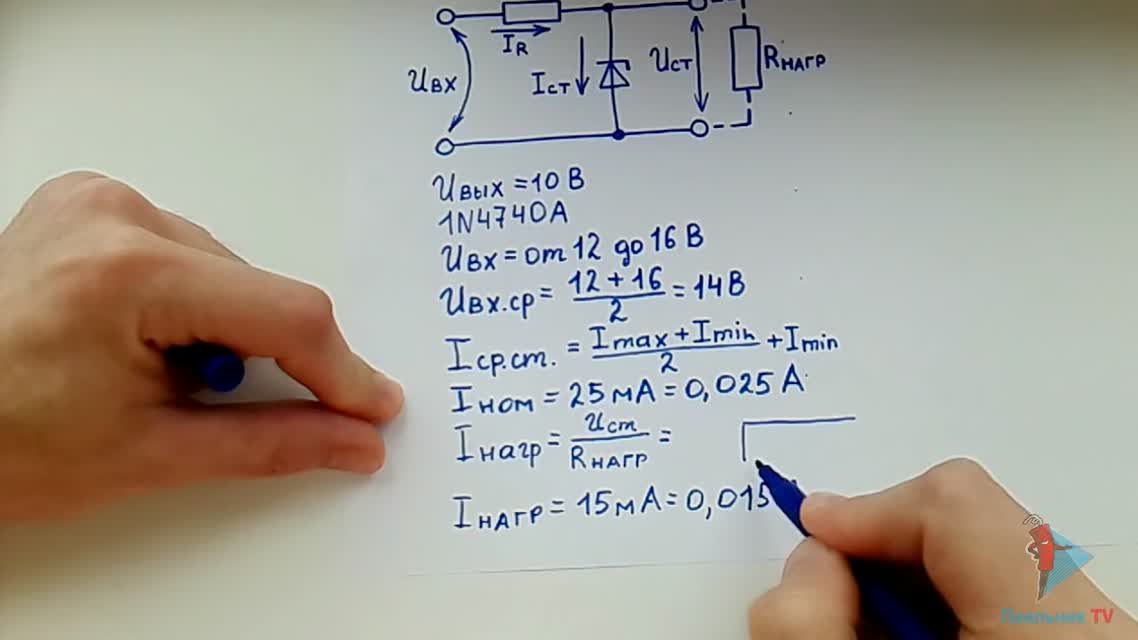 IR
Uвх
Iст
Uст
Rнагр
Uвых = 10 В
1N4740A
Uвх = от 12 до 16 В
Uвх.ср = 12 + 16 / 2 = 14В
Iср.ст. = Imax + Imin / 2 + Imin
Iном = 25 мА = 0,025 А
Iнагр = Uст / Rнагр =
Iнагр = 15 мА = 0,015
Паяльник TV